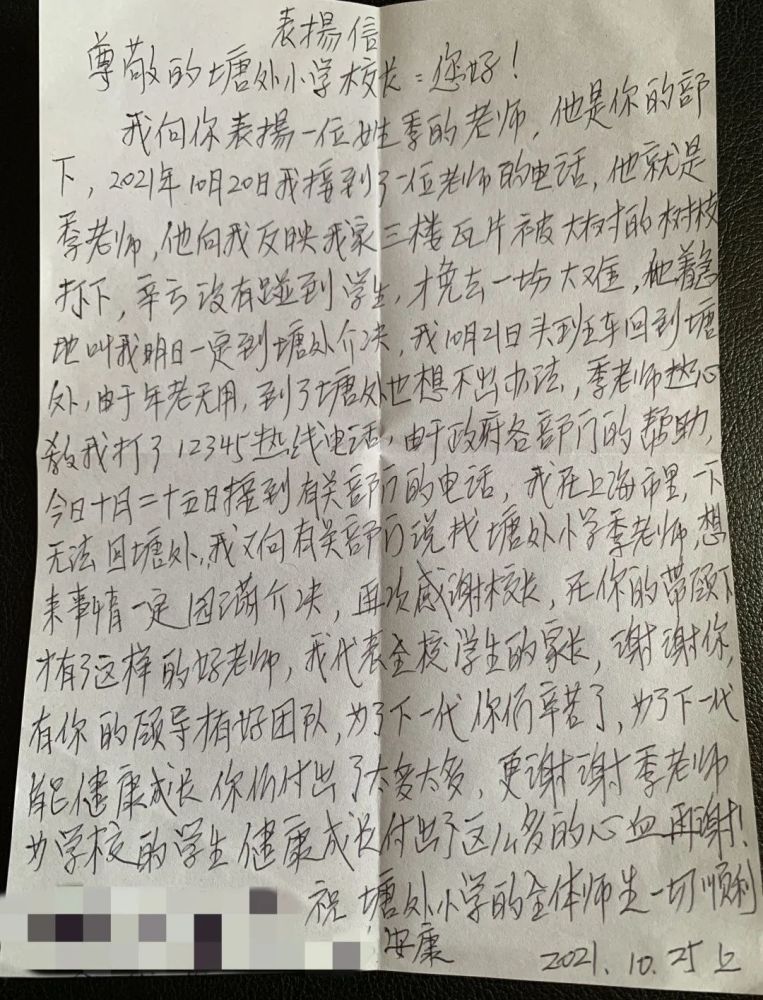 表揚信
尊敬的塘外小学校长：您好！
我向你表揚一位姓季的老师，他是你的部
下，2021年10月20日我接到了一位老师的电话，他就是
季老师，他向我反映我家三楼瓦片被大树的树枝
打下，幸亏没有碰到学生，才免去一场大难，他着急
地叫我明日一定到塘外介决，我10月21日头班车回到塘
外，由于年老无用，到了塘外也想不出办法，季老师热心
教我打了12345热线电话，由于政府各部门的帮助，
今日十月二十五日接到有关部门的电话，我在上海市里，一下
无法回塘外，我又向有关部门说找塘外小学季老师，想
来事情一定园满介决，再次感谢校长，在你的带领下
才有了这样的好老师，我代表全校学生的家长，谢谢你，
有你的领导才有好团队，为了下一代你们辛苦了，为了下一代
能健康成长你们付出了太多太多，更谢谢季老师
为学校的学生健康成长付出了这么多的心血再谢！
祝塘外小学的全体师生一切顺利
安康
2021.10.25上